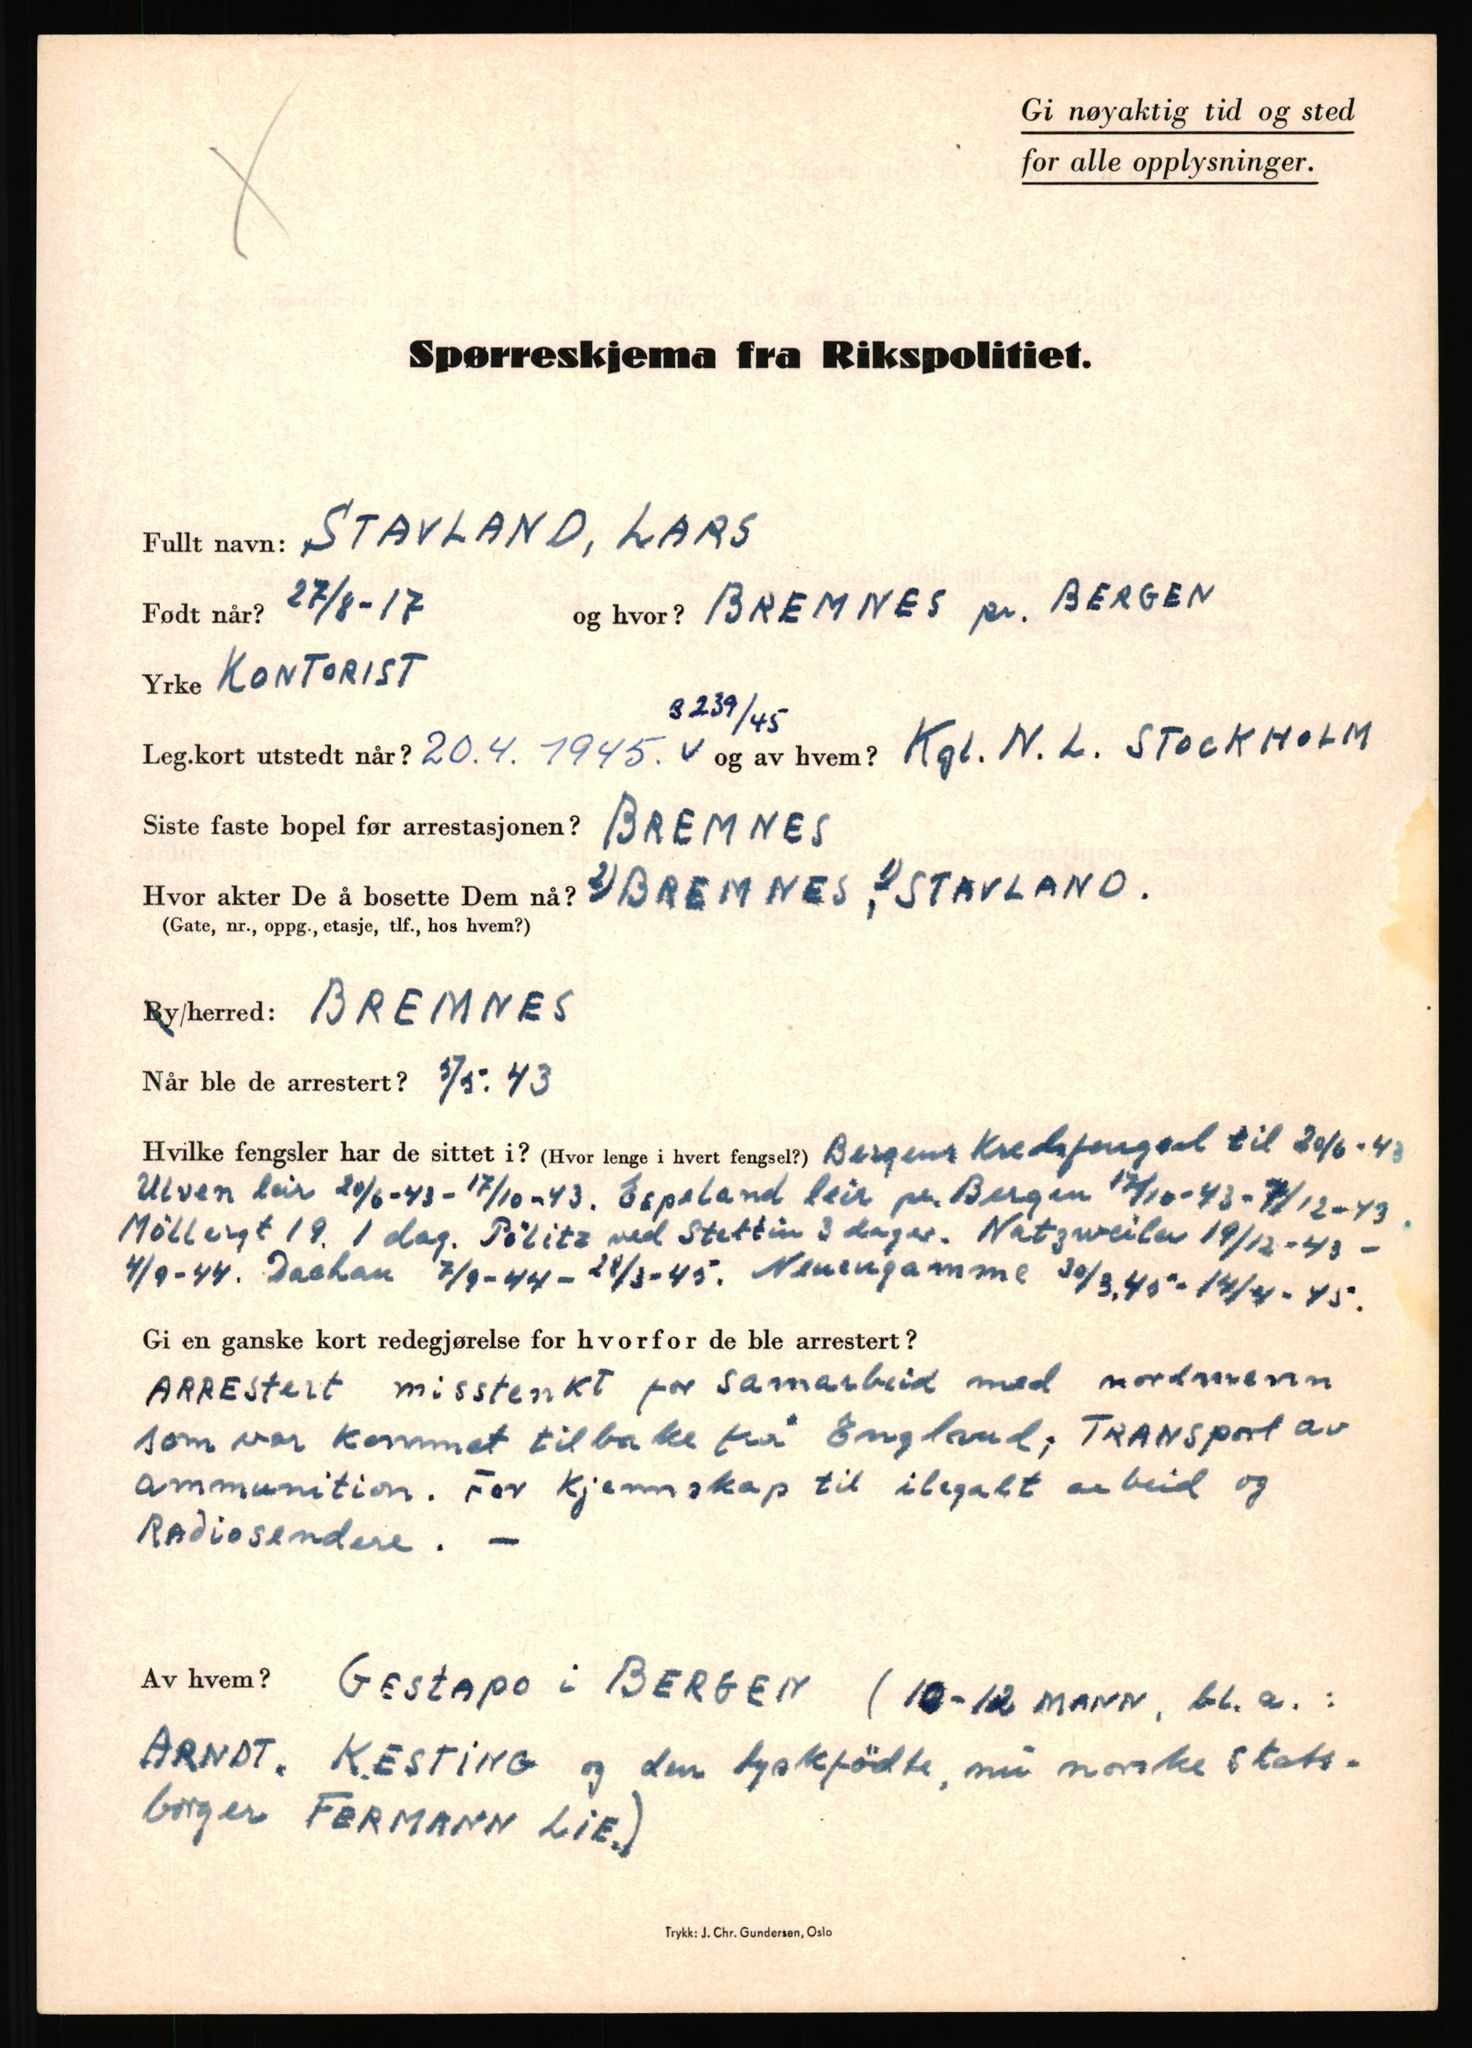 Gi nøyaktig tid og sted
for alle opplysninger.
Spørreskjema fra Rikspolitiet.
Fullt navn: STAVLAND, LARS
Født når? 27/8-17 og hvor? BREMNES pr. BERGEN
Yrke KONTORIST
3 239/45
Leg.kort utstedt når? 20.4. 1945. og av hvem? Kgl. N. L. STOCKHOLM
Siste faste bopel før arrestasjonen? BREMNES
Hvor akter De å bosette Dem nå? 2) BREMNES, 1) STAVLAND.
(Gate, nr., oppg., etasje, tlf., hos hvem?)
By/herred: BREMNES
Når ble de arrestert? 5/5. 43
Hvilke fengsler har de sittet i? (Hvor lenge i hvert fengsel?) Bergens Kredsfengsel til 20/6-43
Ulven leir 20/6-43-17/10-43. Espeland leir pr. Bergen 17/10-43-7/12-43.
Möllergt 19. 1 dag. Pölitz ved Stettin 3 dager. Natzweiler 19/12-43-
4/9-44. Dachau 7/9-44-28/3-45. Neuengamme 30/3.45-14/4-45.
Gi en ganske kort redegjørelse for hvorfor de ble arrestert?
ARREStert misstenkt for samarbeid med nordmenn
som var kommet tilbake frå England, TRANSport av
ammunition. For kjennskap til ilegalt arbeid og
Radiosendere. —
Av hvem? GEStapo i BERGEN (10-12 MANN, bl. a. :
ARNDT. KESTING og den tyskfödte, nu norske stats-
borger FERMANN LIE.)
Trykk: J. Chr. Gundersen, Oslo